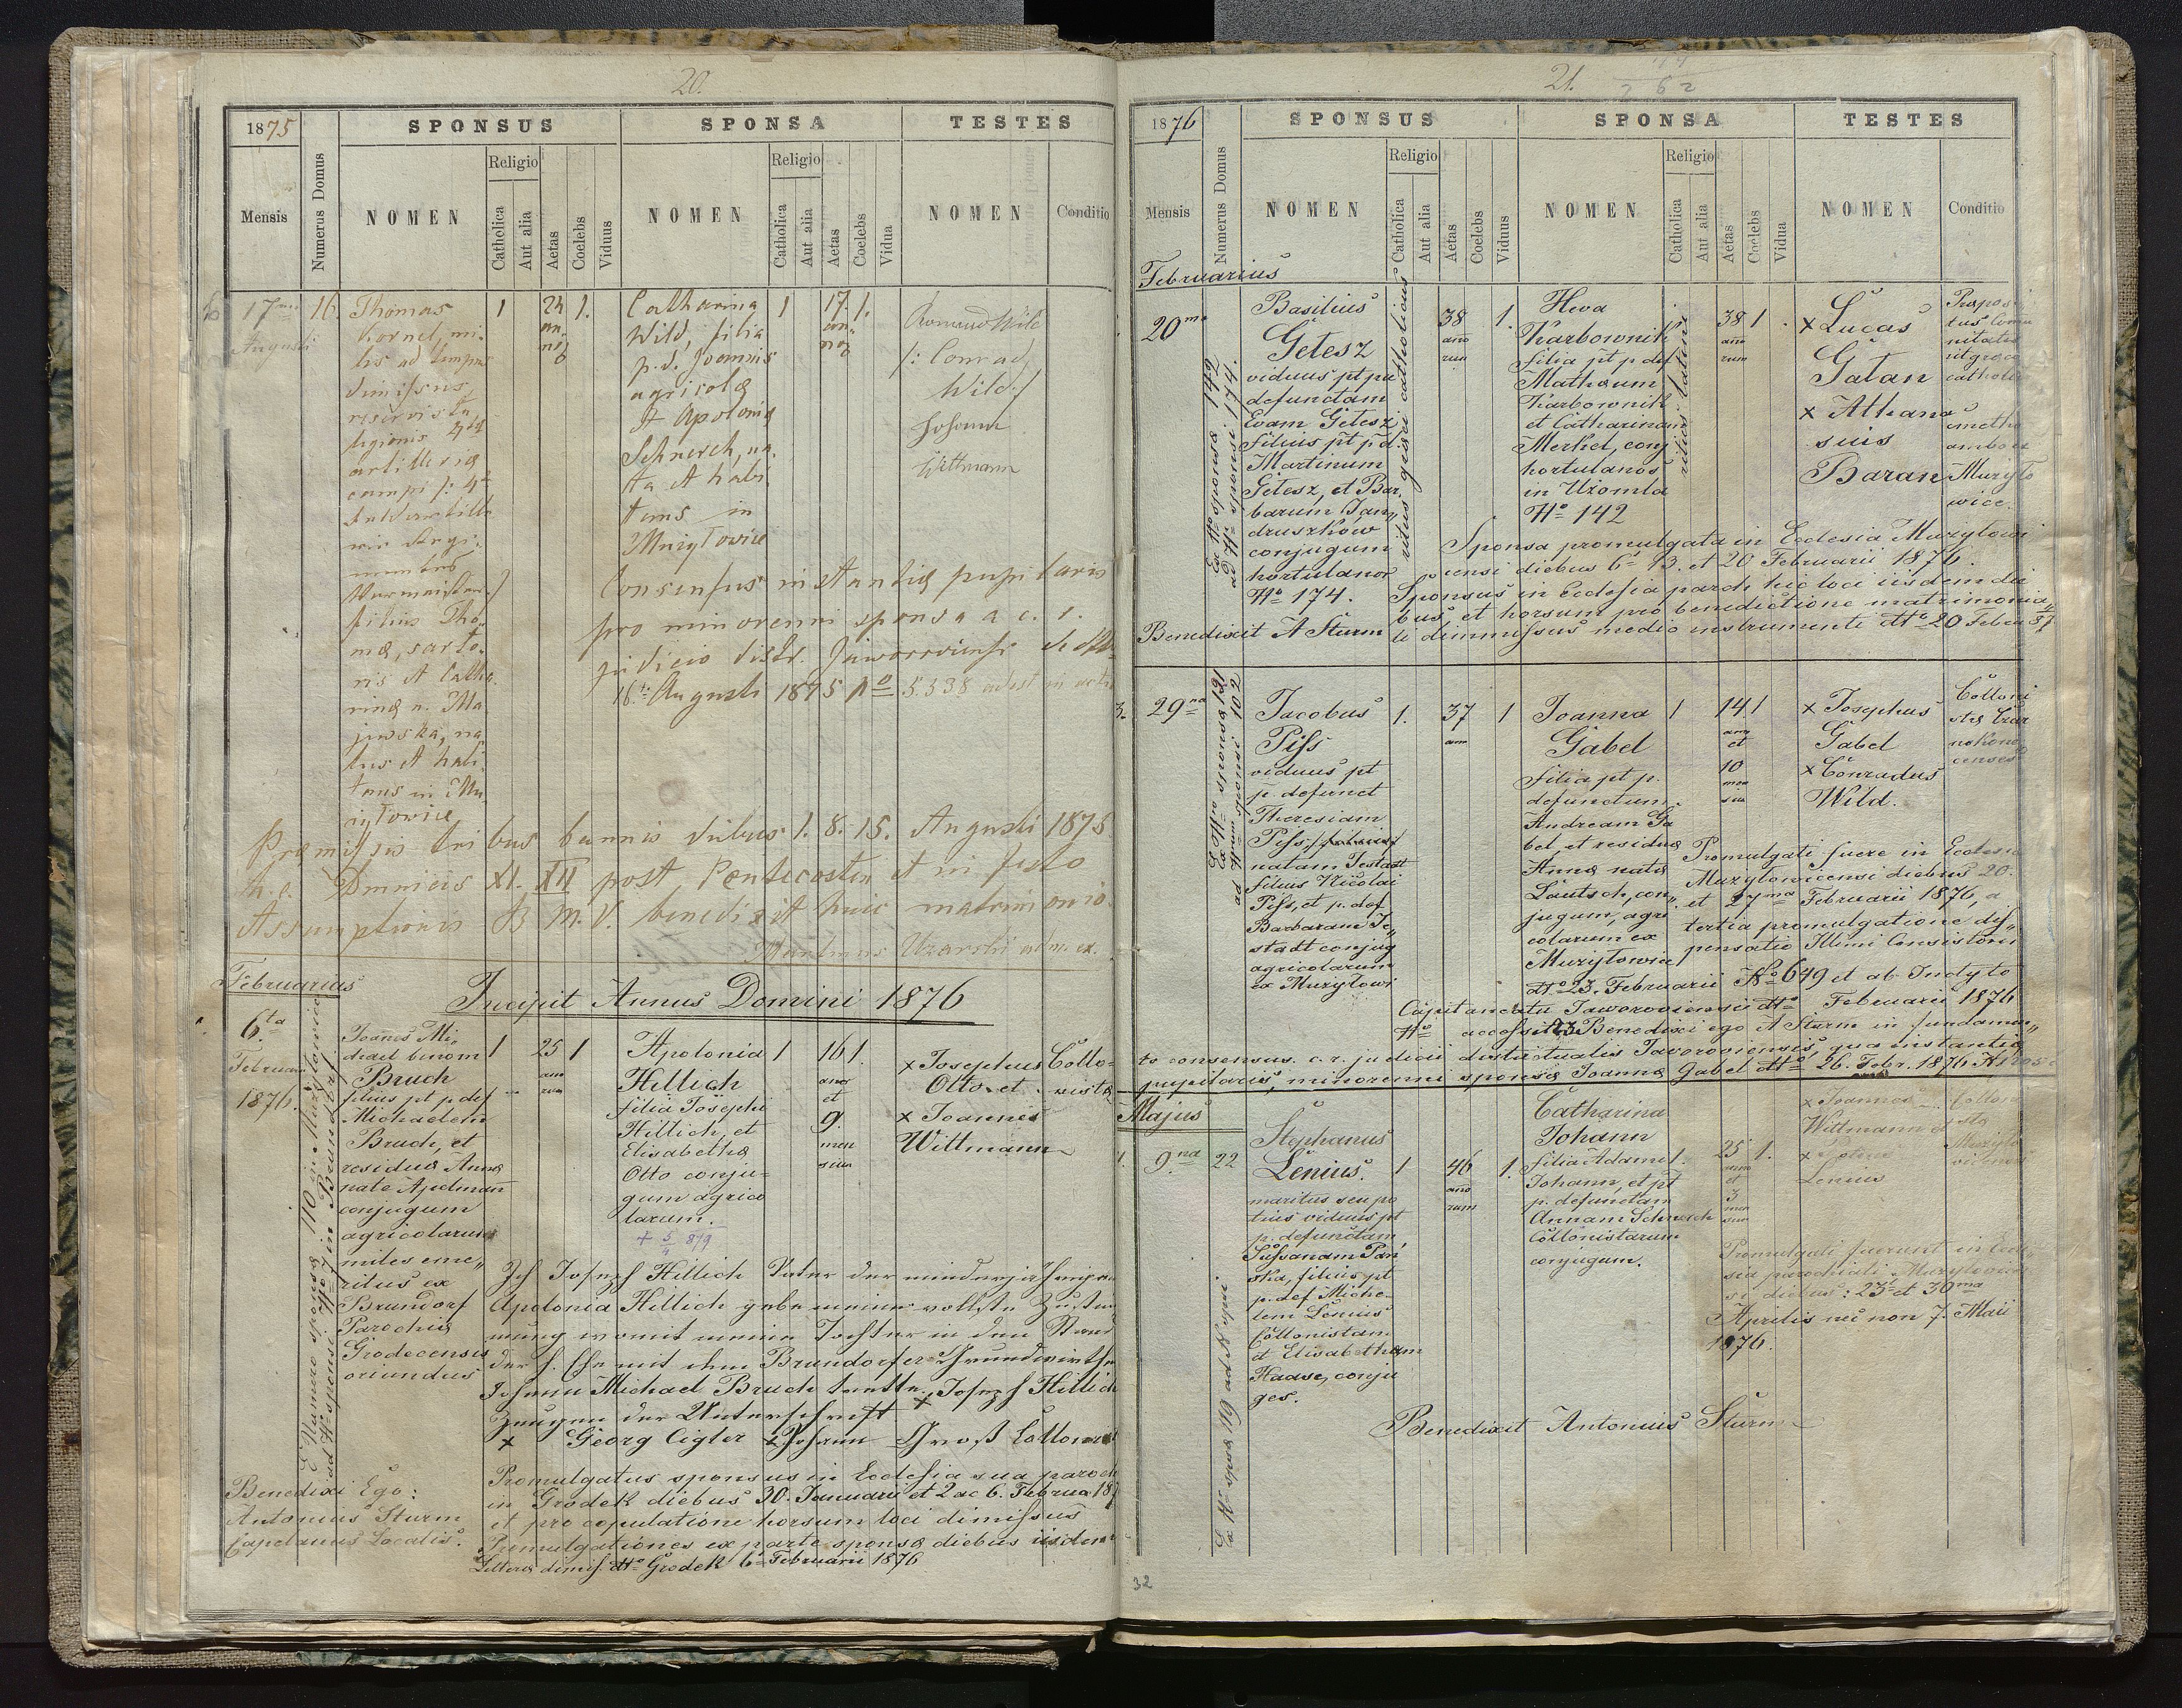 20.
1875
SPONSUS
SPONSA
TESTES
Mensis
Numerus Domus
NOMEN
Religio
Catholica
Aut alia
Aetas
Coelebs
Viduus
NOMEN
Religio
Catholica
Aut alia
Aetas
Coelebs
Vidua
NOMEN
Conditio
17
Augusti
16.
Thomas
Kornel, mi-
les ad tempus
dimissus,
reservista
legionis
artilleriae
campi
filius Tho-
mae, sarto-
ris et Catha-
rinae n. Ma-
jewska, na-
tus et habi-
tans in Mu-
żyłowice
1
24
an-
nos
1.
Catharina
Wild, filia
p. d. Joannis
agricolae
et Apoloniae
Schnerch, na-
ta et habi-
tans in
Mużyłowice
1
17.
an-
nos
1.
Conrad
Wild./
Johann
Wittmann
Consensus instantiae pupilaris
pro minorenni sponsa a c. r.
judicio distr. Jaworoviensi de dto
16. Augusti 1875 No 5338 adest in actis
Praemissis tribus bannis diebus 1. 8. 15. Augusti 1875
h. e. Dominicis XI. XII post Pentecosten et in festo
Assumptionis B. M. V. benedixit huic matrimonio
Uzarski adm. ex.
Februarius
Incipit Annus Domini 1876
6ta
Februarii
1876.
E Numero sponsae 110 in Mużyłowice
ad No sponsi No 7 in Brundorf
Joannes Mi-
chael binom
Bruch
filius pt p. def
Michaelem
Bruch, et
residuae Annae
natae Apelmann
conjugum
agricolarum
miles eme-
ritus ex
Brundorf
Parochiae
Grodecensis
oriundus
1
25
ann
rum
1
Apolonia
Hillich
filia Josephi
Hillich, et
Elisabethae
Otto conju-
gum agrico
larum.
+ 5/4 879
1
16
annor
et
9.
men
sium
1.
x Josephus
Otto et
x Joannes
Wittmann
Collo-
nistae
Ich Josef Hillich Vater der minderjährigen
Apolonia Hillich gebe meine vollste Zustim
mung womit meine Tochter in den Stand
der h. Ehe mit dem Brundorfer Grundwirthen
Johann Michael Bruch trette. x Josef Hillich
Zeugen der Unterschrift
x Georg Cigler x Johann Groß Collonist
Promulgatus sponsus in Ecclesia sua paroch
in Grodek diebus 30. Januarii et 2 ac 6. Februa. 187
et pro copulatione horsum loci dimissus
Promulgationes ex parte sponsae diebus iisdem
Litterae dimiss. dto Grodek 6 Februarii 1876
Benedixi Ego:
Antonius Sturm
Capelanus Localis.
21.
62
1876
SPONSUS
SPONSA
TESTES
Mensis
Numerus Domus
NOMEN
Religio
Catholica
Aut alia
Aetas
Coelebs
Viduus
NOMEN
Religio
Catholica
Aut alia
Aetas
Coelebs
Vidua
NOMEN
Conditio
Februarius
20ma
Ex No sponsae 142
ad No sponsi 174.
Basilius
Getesz
viduus pt pu
defunctam
Evam Getesz
filius pt p d.
Martinum
Getesz, et Bar,
baram Jan,,
druszków
conjugum
hortulanor
No 174.
ritus graeci catholicus
38
ano
rum
1.
Hewa
Karbownik
filia pt p def
Mathaeum
Karbownik
et Catharinam
Merkel, conj
hortulanos
in Użomla
No 142
ritus latini
38
ano
rum
1
x Lucas
Gatan
x Athana
sius
Baran
Praeposi
tus Comu
nitatis
rit graeco
catholic
ametho
ambo ex
Mużyło
wice.
Sponsa promulgata in Ecclesia Mużyłowi
censi diebus 6 13. et 20 Februarii 1876.
Sponsus in Ecclesia paroch hic loci iisdem die
bus, et horsum pro benedictione matrimonia,,
li dimmissus medio instrumente dto 20 Febru 87
Benedixit A Sturm
3.
29na
Ex No sponsae 121
ad Num sponsi 102
Jacobus
Piss
viduus pt
p. defunct
Theresiam
Piss
natam Testadt
filius Nicolai
Piss, et p. def
Barbaram Te,,
stadt conjug
agricolarum
ex Mużyłowi
1.
37
ann
1
Joanna
Gabel
filia pt p.
defunctum
Andream Ga
bel et residuae
Annae natae
Lautsch, con,,
jugum, agri
colarum ex
Mużyłowice
1
14
ann
et
10
men
sium
1
x Josephus
Gabel
x Conradus
Wild.
Colloni
stae Czar
nokone
censes
Promulgati fuere in Ecclesia
Mużyłowicensi diebus 20.
et 27ma Februarii 1876, a
tertia promulgatione dis,,
pensatio Illimi Consistorii
dto 23. Februarii No 649 et ab Inclyto
Capitaneatu Jaworoviensi dto Februarii 1876
No accessit Benedixi ego A Sturm in fundamen,,
to consensus. c. r. judicii districtualis Javoroviensis, qua instantiae
pupilaris, minorenni sponsae Joannae Gabel dto 26. Febr. 1876
Majus
1.
9.na
22
Ex No sponsae 119 ad N sponsi
Stephanus
Lenius.
maritus seu po
tius viduus pt
p. defunctam
Sussanam Pań
ska, filius pt
p. def Micha-
lem Lenius
Collonistam
et Elisabetham
Haase, conju
ges.
1
46
ano
rum
1.
Catharina
Johann
filia Adami
Johann, et pt
p. defunctam
Annam Schnerch
Collonistarum
conjugum.
1.
25
anno
et
3
men
sium
1.
x Joannes
Wittmann et
x
Lenius
Collonistae
Promulgati fuerunt in Eccle
sia parochiali Mużyłowicen
si diebus: 23 et 30ma
Aprilis nec non 7. Maii
1876.
Benedixit Antonius Sturm
32